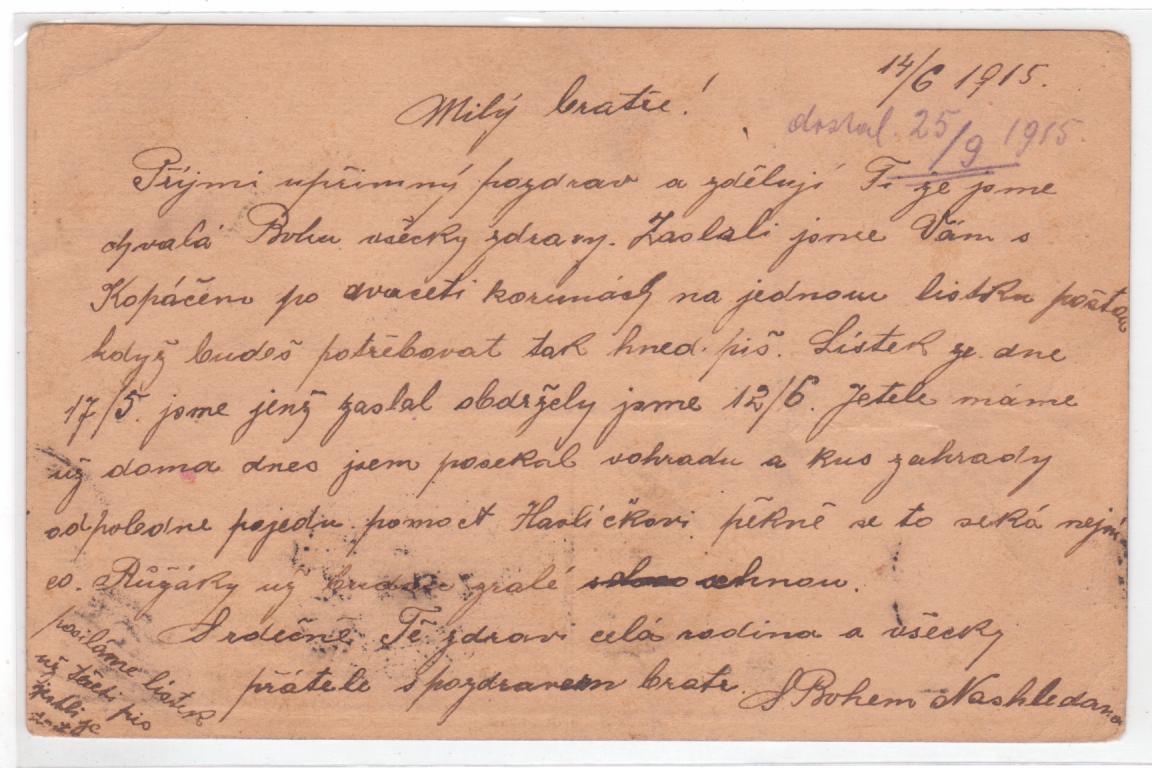 14/6 1915.
Milý bratře!
dostal 25/9 1915.
Přijmi upřimný pozdrav a zdělují Ti že jsme
chvalá Bohu všecky zdravy. Zaslali jsme Vám s
Kopáčem po dvaceti korunách na jednom lístku
když budeš potřebovat tak hned piš. Lístek ze dne
17/5. jsme jenž zaslal obdržely jsme 12/6. Jetele máme
už doma dnes jsem posekal vohradu a kus zahrady
odpoledne pojedu pomoct Havlíčkovi pěkně se to seká
co. Růžáky už budou zralé schnou.
Srdečně Tě zdraví celá rodina a všecky
přátele s pozdravem bratr.
S Bohem Nashledanou
posíláme lístek
už třetí piš
jestli je